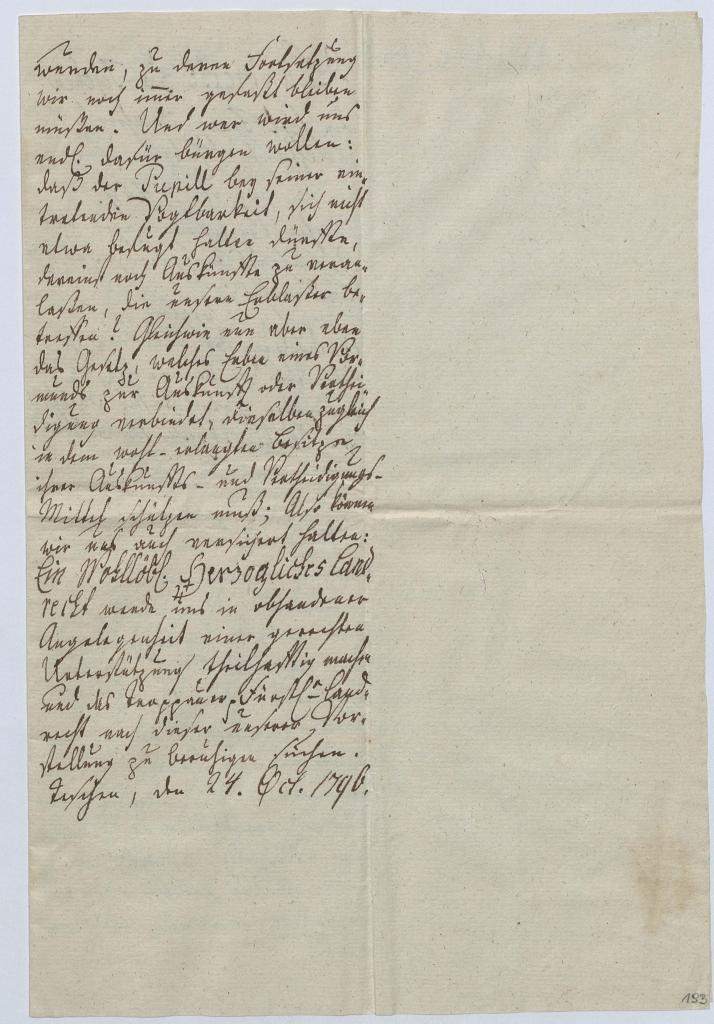 werden, zu deren Fortsetzung
wir noch immer gefaßt bleiben
müßen. Und wer wird uns
endl. dafür bürgen wollen:
daß der Pupill bey seiner ein-
tretenden Vogtbarkeit, sich nicht
etwa befugt halten dürfte,
dereinst noch Auskünfte zu veran-
laßen, die unsern Erblaßer be-
treffen? Gleichwie nun aber eben
das Gesetz, welches Erben eines Vor-
munds zur Auskunft oder Verthei-
digung verbindet, dieselben zugleich
in dem wohl-erlangten Besitze
ihrer Auskunfts- und Vertheidigungs-
Mittel schützen muß; Also können
wir uns auch versichert halten:
Ein Wohllöbl. Herzogliches Land-
recht werde uns in obhandener
Angelegenheit einer gerechten
Unterstützung theilhaftig machen
und das Troppauer Fürstl. Land-
recht nach dieser unserer Vor-
stellung zu beruhigen suchen.
Teschen, den 24. Oct. 1796.
193